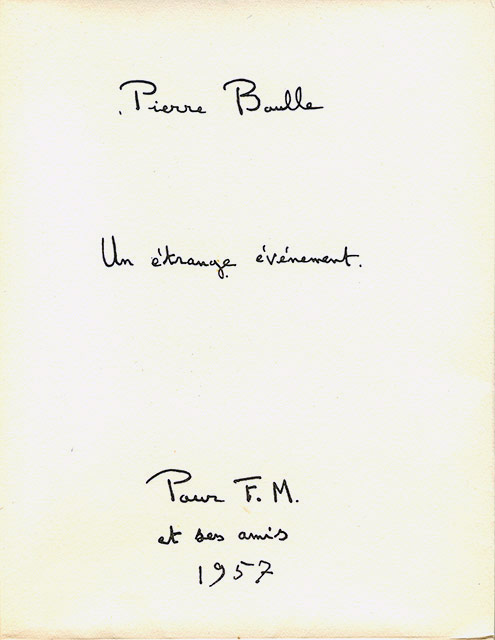 Pierre Boulle
Un étrange événement.
Pour F. M.
et ses amis
1957